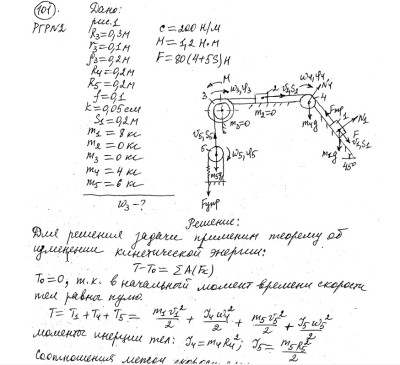 101. Дано:
РГР№2 рис.1
R₃=0,3м
r₃=0,1м
ρ₃=0,2м
R₄=0,2м
R₅=0,2м
f=0,1
k=0,05см
S₁=0,2м
m₁=8 кг
m₂=0 кг
m₃=0 кг
m₄=4 кг
m₅=6 кг
ω₃-?
c=200 Н/м
M=1,2 Н·м
F=80(4+5S)Н
M
ω₃,φ₃
3
m₃=0
2
m₂=0
ω₄,φ₄
N₄
4
m₄g
Fтр
N₁
1
F
m₁g
45°
5
ω₅,φ₅
m₅g
Fупр
Решение:
Для решения задачи применим теорему об
изменении кинетической энергии:
T-T₀=ΣA(Fₖ)
T₀=0, т.к. в начальный момент времени скорости
тел равны нулю.
T=T₁+T₄+T₅= m₁v₁²/2 + J₄ω₄²/2 + m₅v₅²/2 + J₅ω₅²/2
моменты инерции тел: J₄=m₄R₄²/2; J₅=m₅R₅²/2
Соотношения между